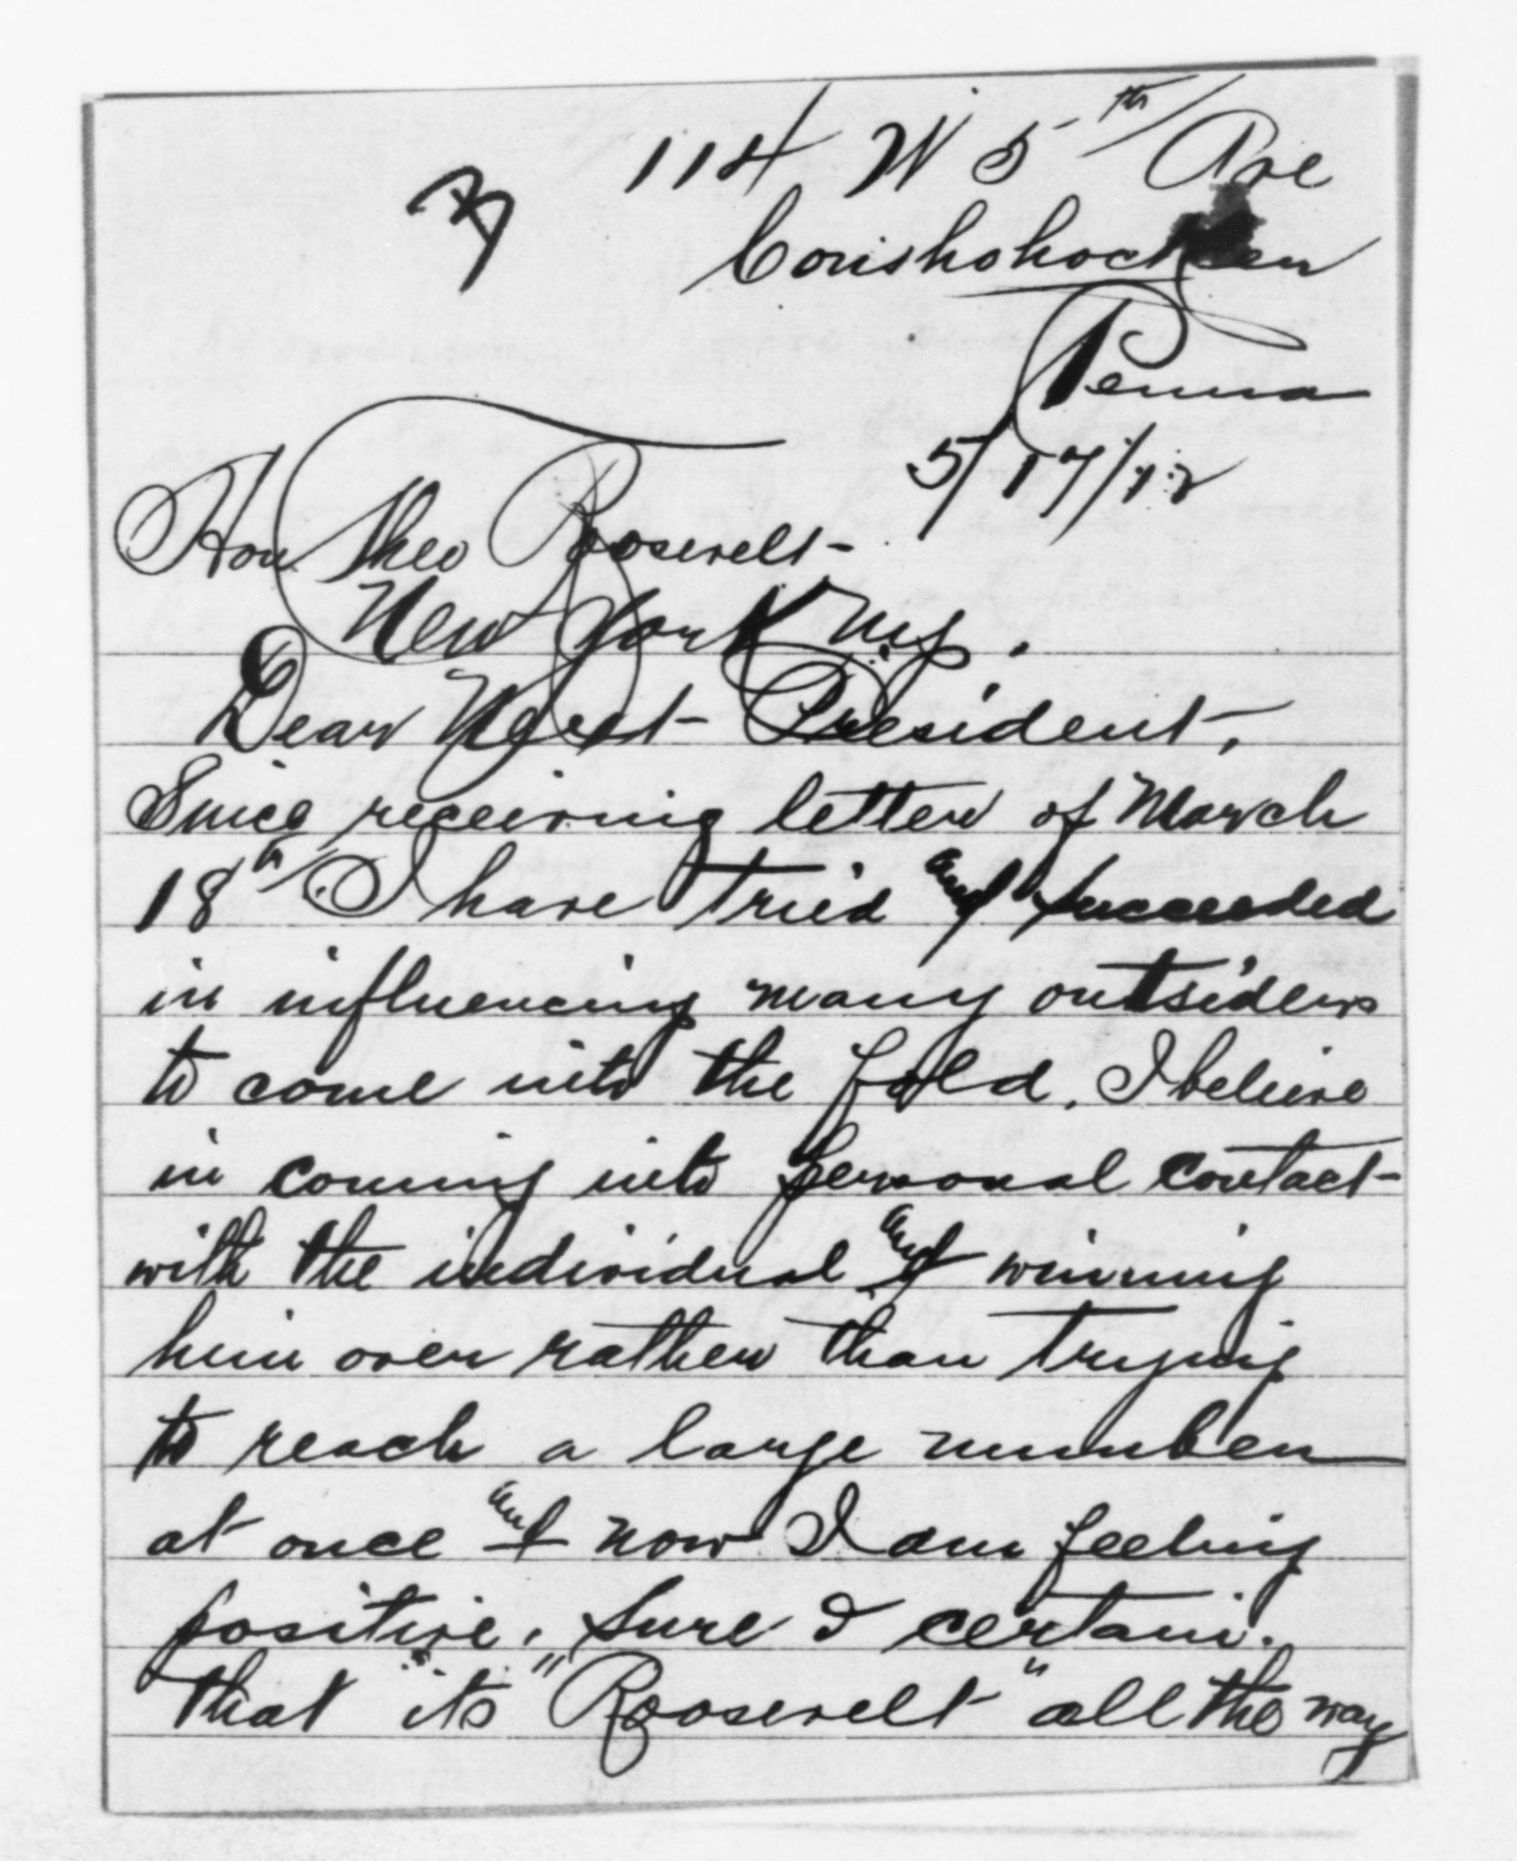 114 W 5th Ave
Conshohocken
Penna
5/17/12
Hon Theo Roosevelt
New York N.Y.
Dear Next President,
Since receiving letter of March
18th I have tried and succeeded
in influencing many outsiders
to come into the fold. I believe
in coming into personal contact
with the individual and winning
him over rather than trying
to reach a large number
at once and now I am feeling
positive, sure & certain.
that its "Roosevelt" all the way